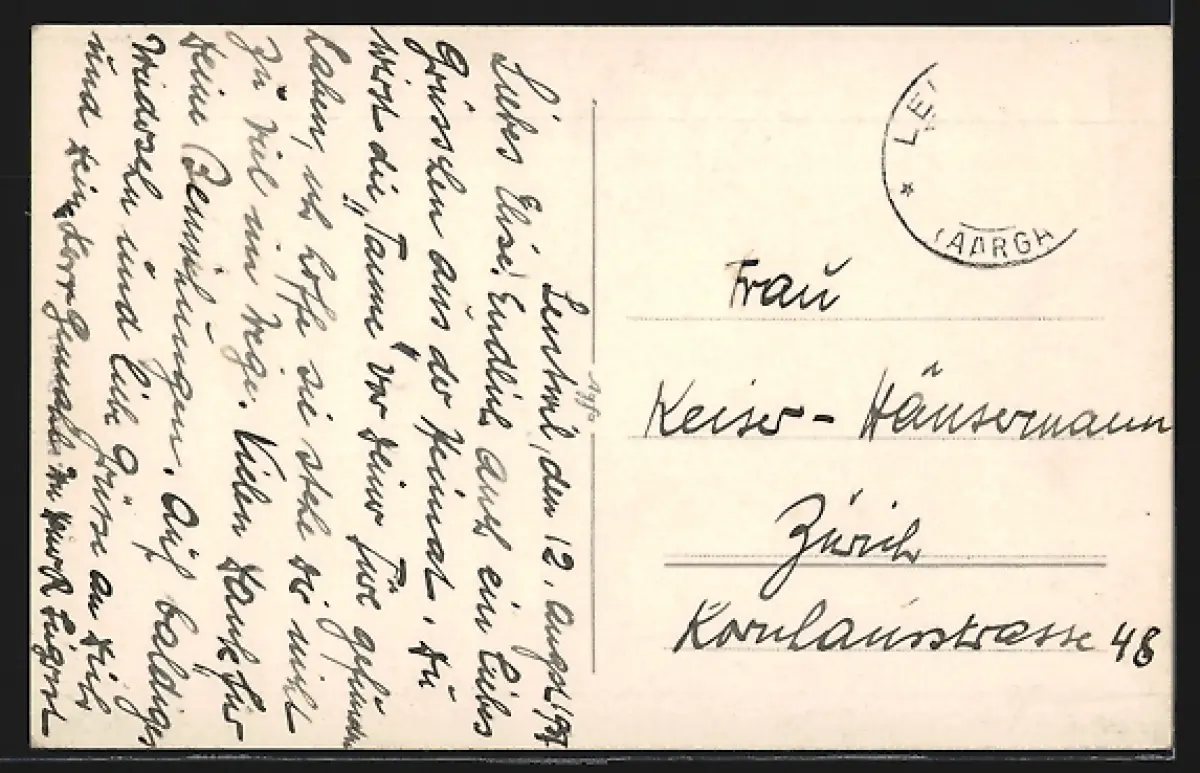 Leutwil, den 12. August
Liebes Elise! Endlich auch ein liebs
Grüsschen aus der Heimat. Du
wirst die "Tanne" vor deiner Türe gefunden
haben, ich hoffe sie stehe dir nicht
zu viel im Wege. Vielen Dank für
deine Bemühungen. Auf baldiges
Wiedersehn und liebe Grüsse an dich
und dein Herr Gemahl
LE
(AARGA
Frau
Keiser - Häusermann
Zürich
Kornhausstrasse 48